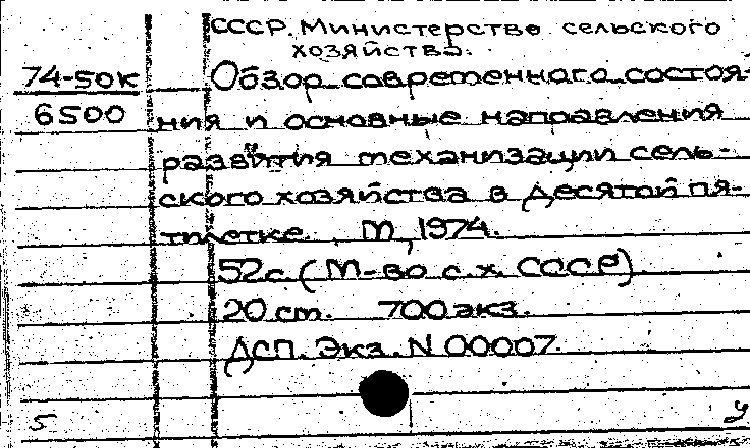 СССР. Министерство сельского
хозяйства.
74-50к
6500
Обзор современного состоя-
ния и основные направления
развития механизации сель-
ского хозяйства в десятой пя-
тилетке. М, 1974.
52с. (М-во с.х. СССР)
20 ст. 700 экз.
ДСП. Экз. N 00007.
5
У